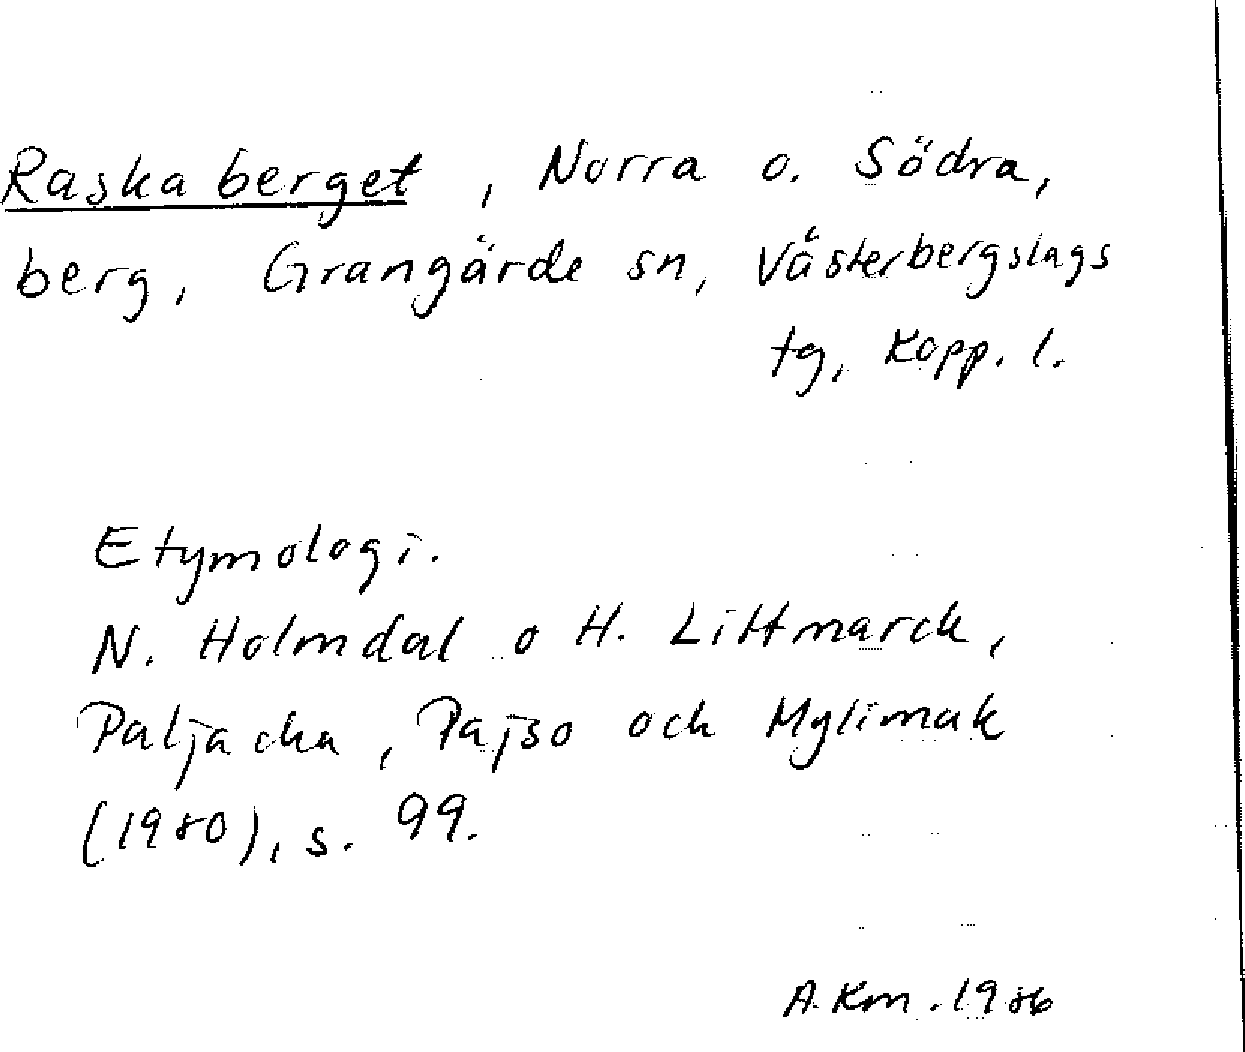 Raska berget, Norra o. Södra,
berg, Grangärde sn, Västerbergslags
tg, Kopp. l.
Etymologi.
N. Holmdal o H. Littmarck,
Paljacka, Pajso och Mylimak
(1980), s. 99.
A. Km. 1986